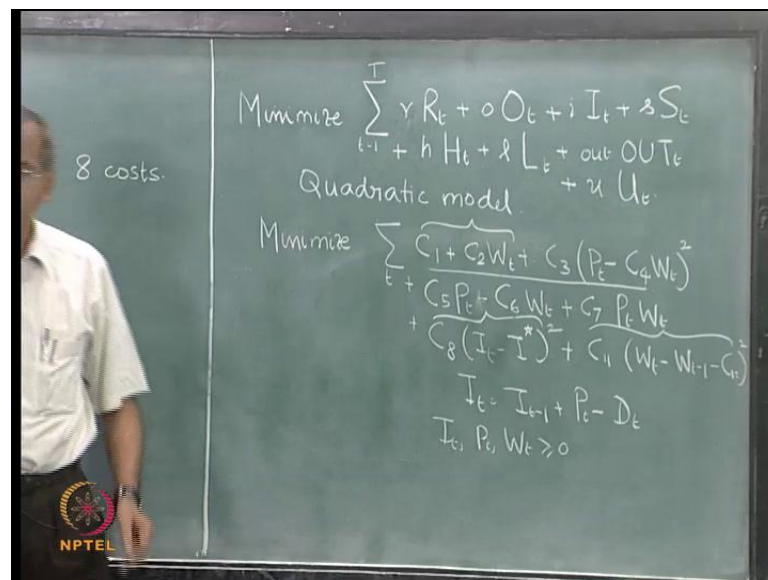 8 costs.
T
Minimize ∑ r R_t + o O_t + i I_t + s S_t
t=1
+ h H_t + l L_t + out OUT_t
+ u U_t.
Quadratic model.
Minimize ∑ C_1 + C_2 W_t + C_3 (P_t - C_4 W_t)^2
t
+ C_5 P_t - C_6 W_t + C_7 P_t W_t
+ C_8 (I_t - I^*)^2 + C_11 (W_t - W_t-1 - C_12)^2
I_t = I_t-1 + P_t - D_t
I_t, P_t, W_t ≥ 0
NPTEL